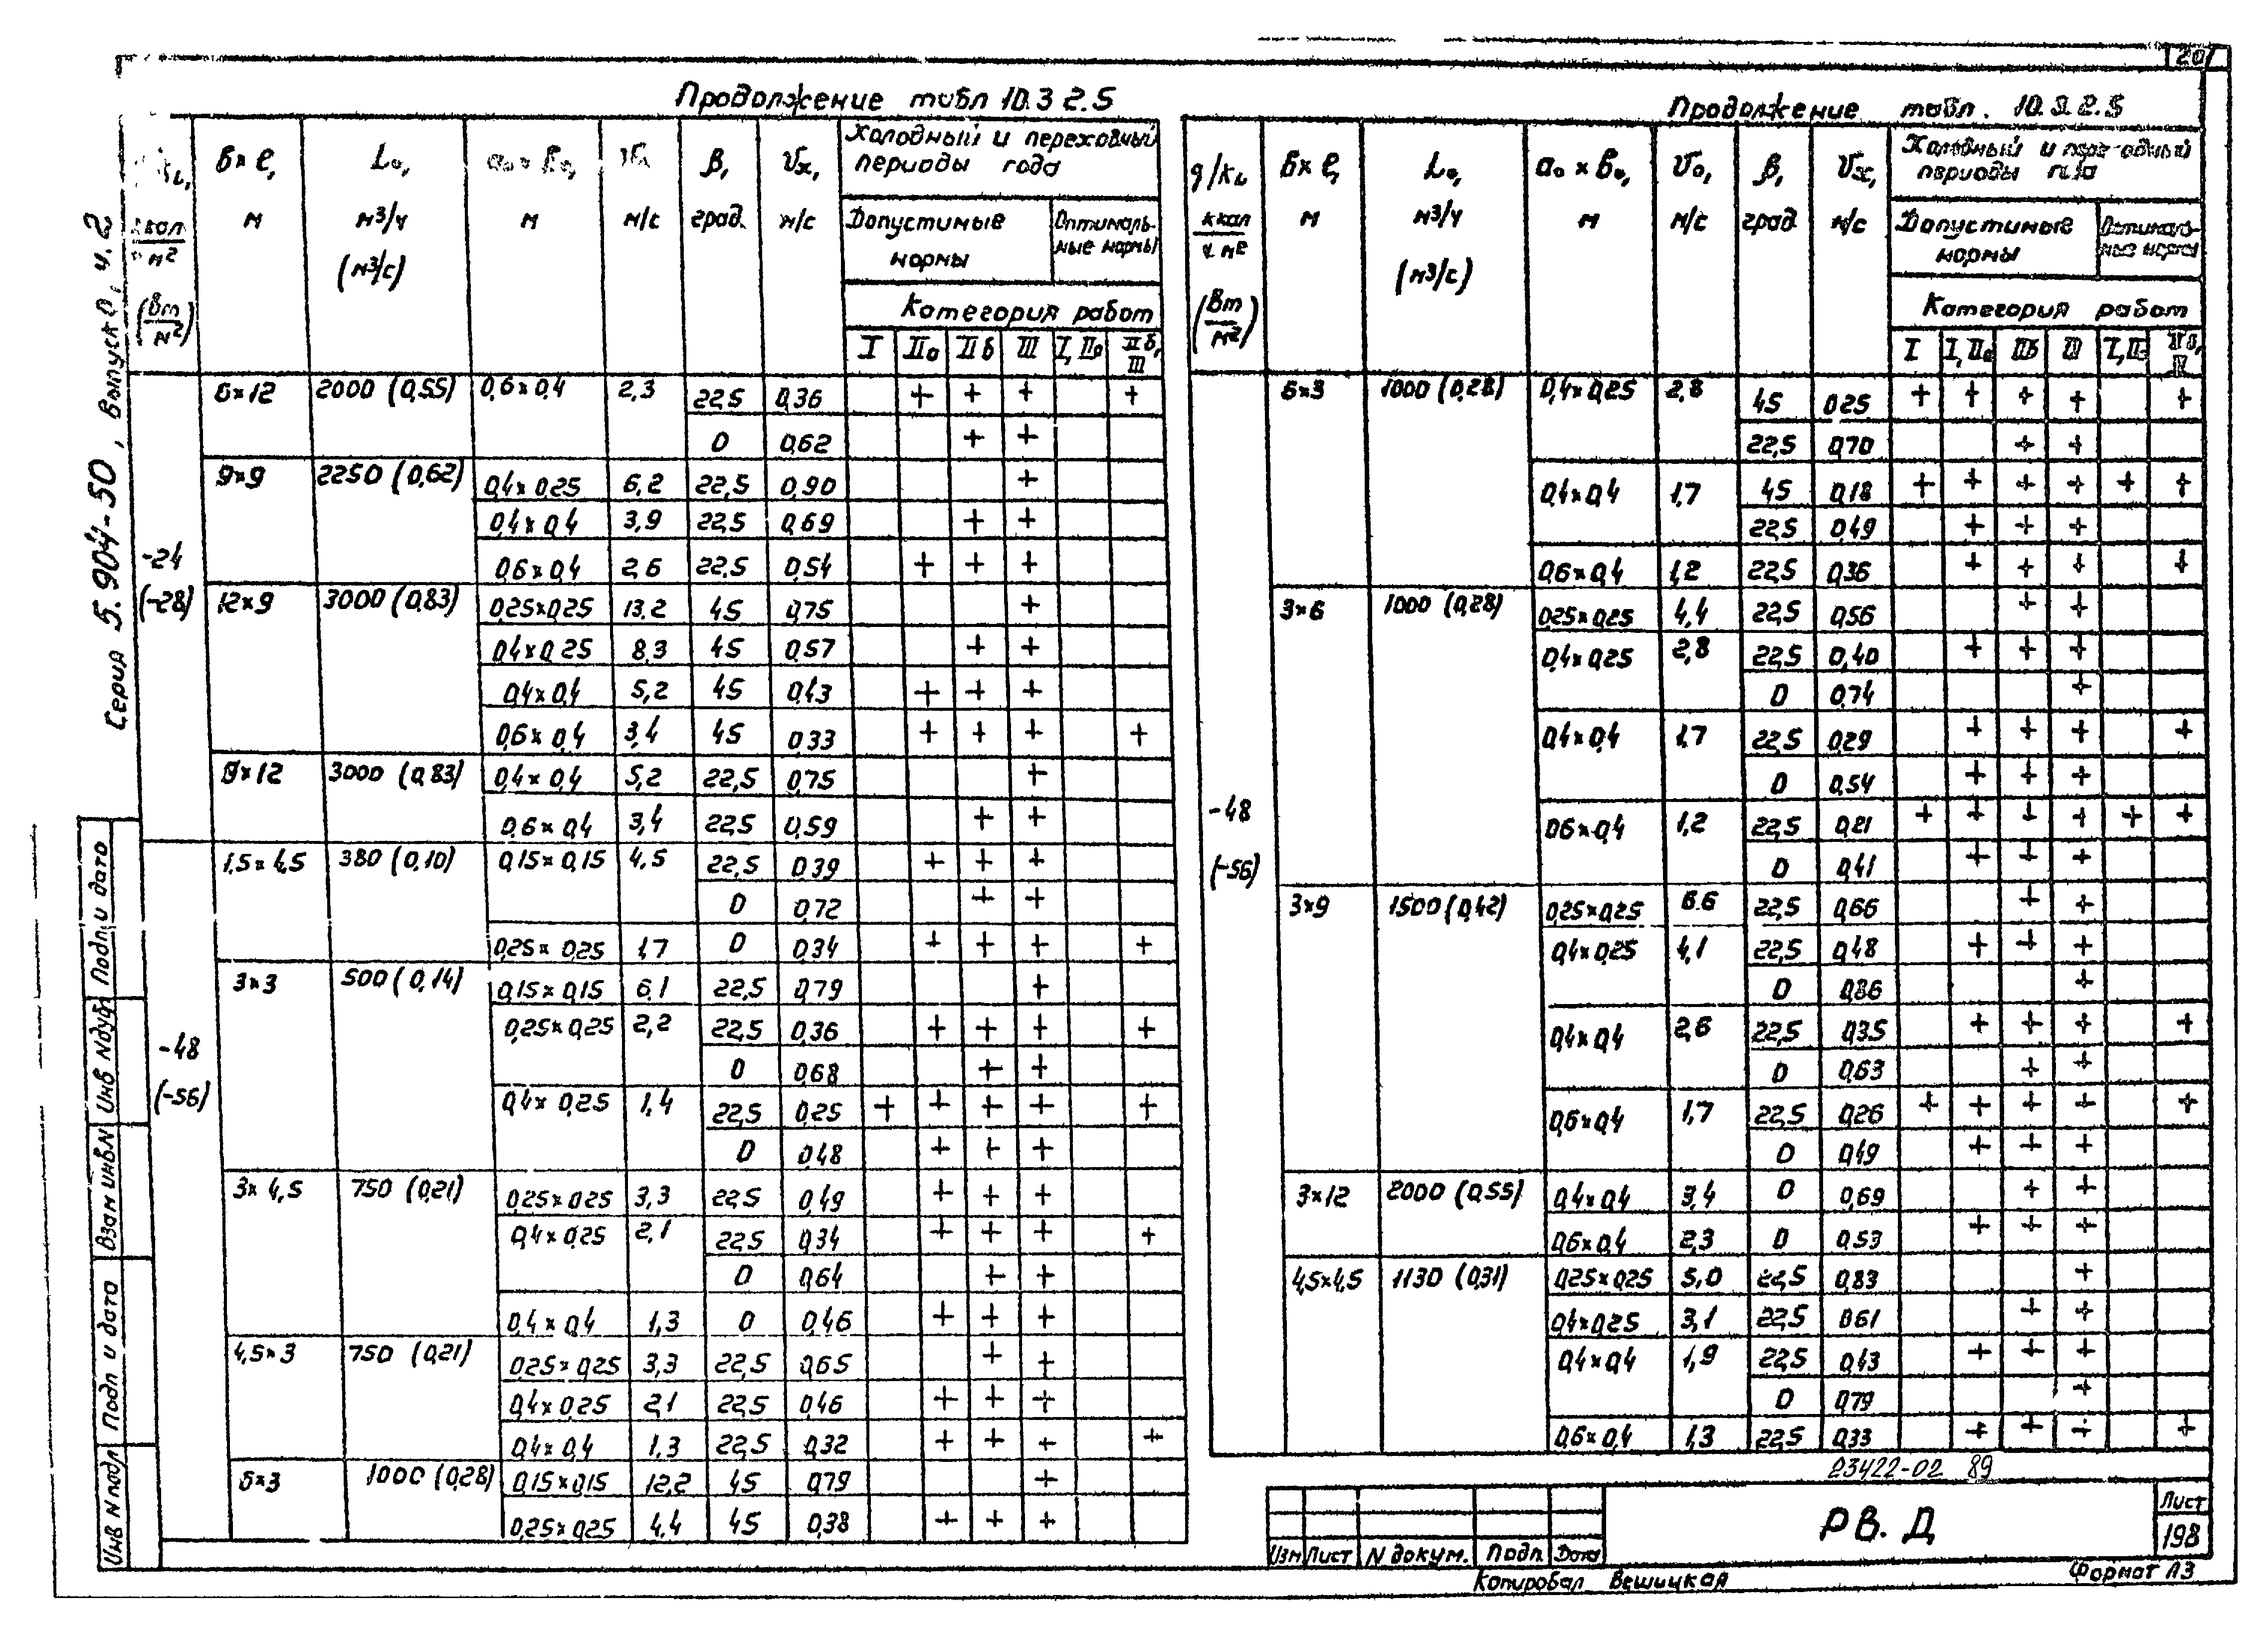 20
Серия 5.904-50, выпуск 0, ч.2
Продолжение табл 10.3 2.5
б×ℓ, L₀, a₀×b₀, β, Vx, Холодный и переходный периоды года
м м³/ч м м/с град. м/с Допустимые нормы Оптималь-ные нормы
ккал/ч м² (м³/с)
(Вт/м²) Категория работ
I IIа IIб III I, IIа IIб, III
-24 (-28)
6×12 2000 (0,55) 0,6×0,4 2,3 22,5 0,36 + + + +
0 0,62 + +
9×9 2250 (0,62) 0,4×0,25 6,2 22,5 0,90 +
0,4×0,4 3,9 22,5 0,69 + +
0,6×0,4 2,6 22,5 0,54 + + +
12×9 3000 (0,83) 0,25×0,25 13,2 45 0,75 +
0,4×0,25 8,3 45 0,57 + +
0,4×0,4 5,2 45 0,43 + + +
0,6×0,4 3,4 45 0,33 + + + +
9×12 3000 (0,83) 0,4×0,4 5,2 22,5 0,75 +
0,6×0,4 3,4 22,5 0,59 + +
-48 (-56)
1,5×4,5 380 (0,10) 0,15×0,15 4,5 22,5 0,39 + + +
0 0,72 + +
0,25×0,25 1,7 0 0,34 + + + +
3×3 500 (0,14) 0,15×0,15 6,1 22,5 0,79 +
0,25×0,25 2,2 22,5 0,36 + + + +
0 0,68 + +
0,4×0,25 1,4 22,5 0,25 + + + + +
0 0,48 + + +
3×4,5 750 (0,21) 0,25×0,25 3,3 22,5 0,49 + + +
0,4×0,25 2,1 22,5 0,34 + + + +
0 0,64 + +
0,4×0,4 1,3 0 0,46 + + +
4,5×3 750 (0,21) 0,25×0,25 3,3 22,5 0,65 + +
0,4×0,25 2,1 22,5 0,46 + + +
0,4×0,4 1,3 22,5 0,32 + + + +
6×3 1000 (0,28) 0,15×0,15 12,2 45 0,79 +
0,25×0,25 4,4 45 0,38 + + +
Продолжение табл. 10.3.2.5
q/kL б×ℓ, L₀, a₀×b₀, V₀, β, Vx, Холодный и переходный периоды года
ккал/ч м² м м³/ч м м/с град м/с Допустимые нормы Оптималь-ные нормы
(м³/с)
(Вт/м²) Категория работ
I I, IIа IIб III I, IIа IIб, III
-48 (-56)
6×3 1000 (0,28) 0,4×0,25 2,8 45 0,25 + + + + +
22,5 0,70 + +
0,4×0,4 1,7 45 0,18 + + + + + +
22,5 0,49 + + +
0,6×0,4 1,2 22,5 0,36 + + + +
3×6 1000 (0,28) 0,25×0,25 4,4 22,5 0,56 + +
0,4×0,25 2,8 22,5 0,40 + + +
0 0,74 +
0,4×0,4 1,7 22,5 0,29 + + + +
0 0,54 + + +
0,6×0,4 1,2 22,5 0,21 + + + + + +
0 0,41 + + +
3×9 1500 (0,42) 0,25×0,25 6,6 22,5 0,66 + +
0,4×0,25 4,1 22,5 0,48 + + +
0 0,86 +
0,4×0,4 2,6 22,5 0,35 + + + +
0 0,63 + +
0,6×0,4 1,7 22,5 0,26 + + + + +
0 0,49 + + +
3×12 2000 (0,55) 0,4×0,4 3,4 0 0,69 + +
0,6×0,4 2,3 0 0,53 + + +
4,5×4,5 1130 (0,31) 0,25×0,25 5,0 22,5 0,83 +
0,4×0,25 3,1 22,5 0,61 + +
0,4×0,4 1,9 22,5 0,43 + + +
0 0,79 +
0,6×0,4 1,3 22,5 0,33 + + + +
23422-02 89
Инв N подл Подп и дата Взам инв N Инв N дубл Подп и дата
Изм Лист N докум. Подп Дата
РВ. Д
Лист
198
Копировал Вешицкая
Формат А3